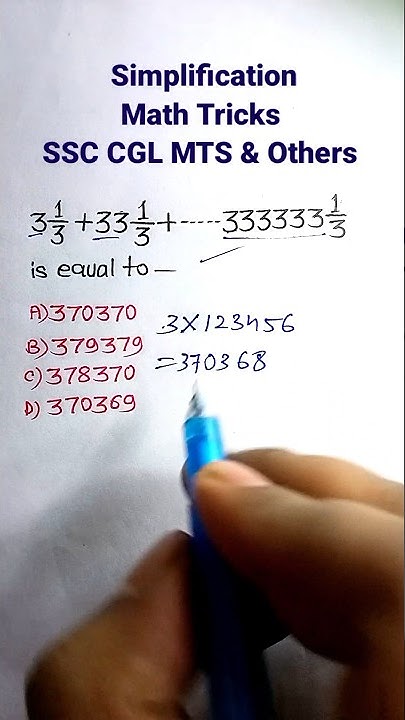 Simplification
Math Tricks
SSC CGL MTS & Others
3 1/3 + 33 1/3 + ----- 333333 1/3
is equal to —
A) 370370
B) 379379
C) 378370
D) 370369
3×123456
=370368